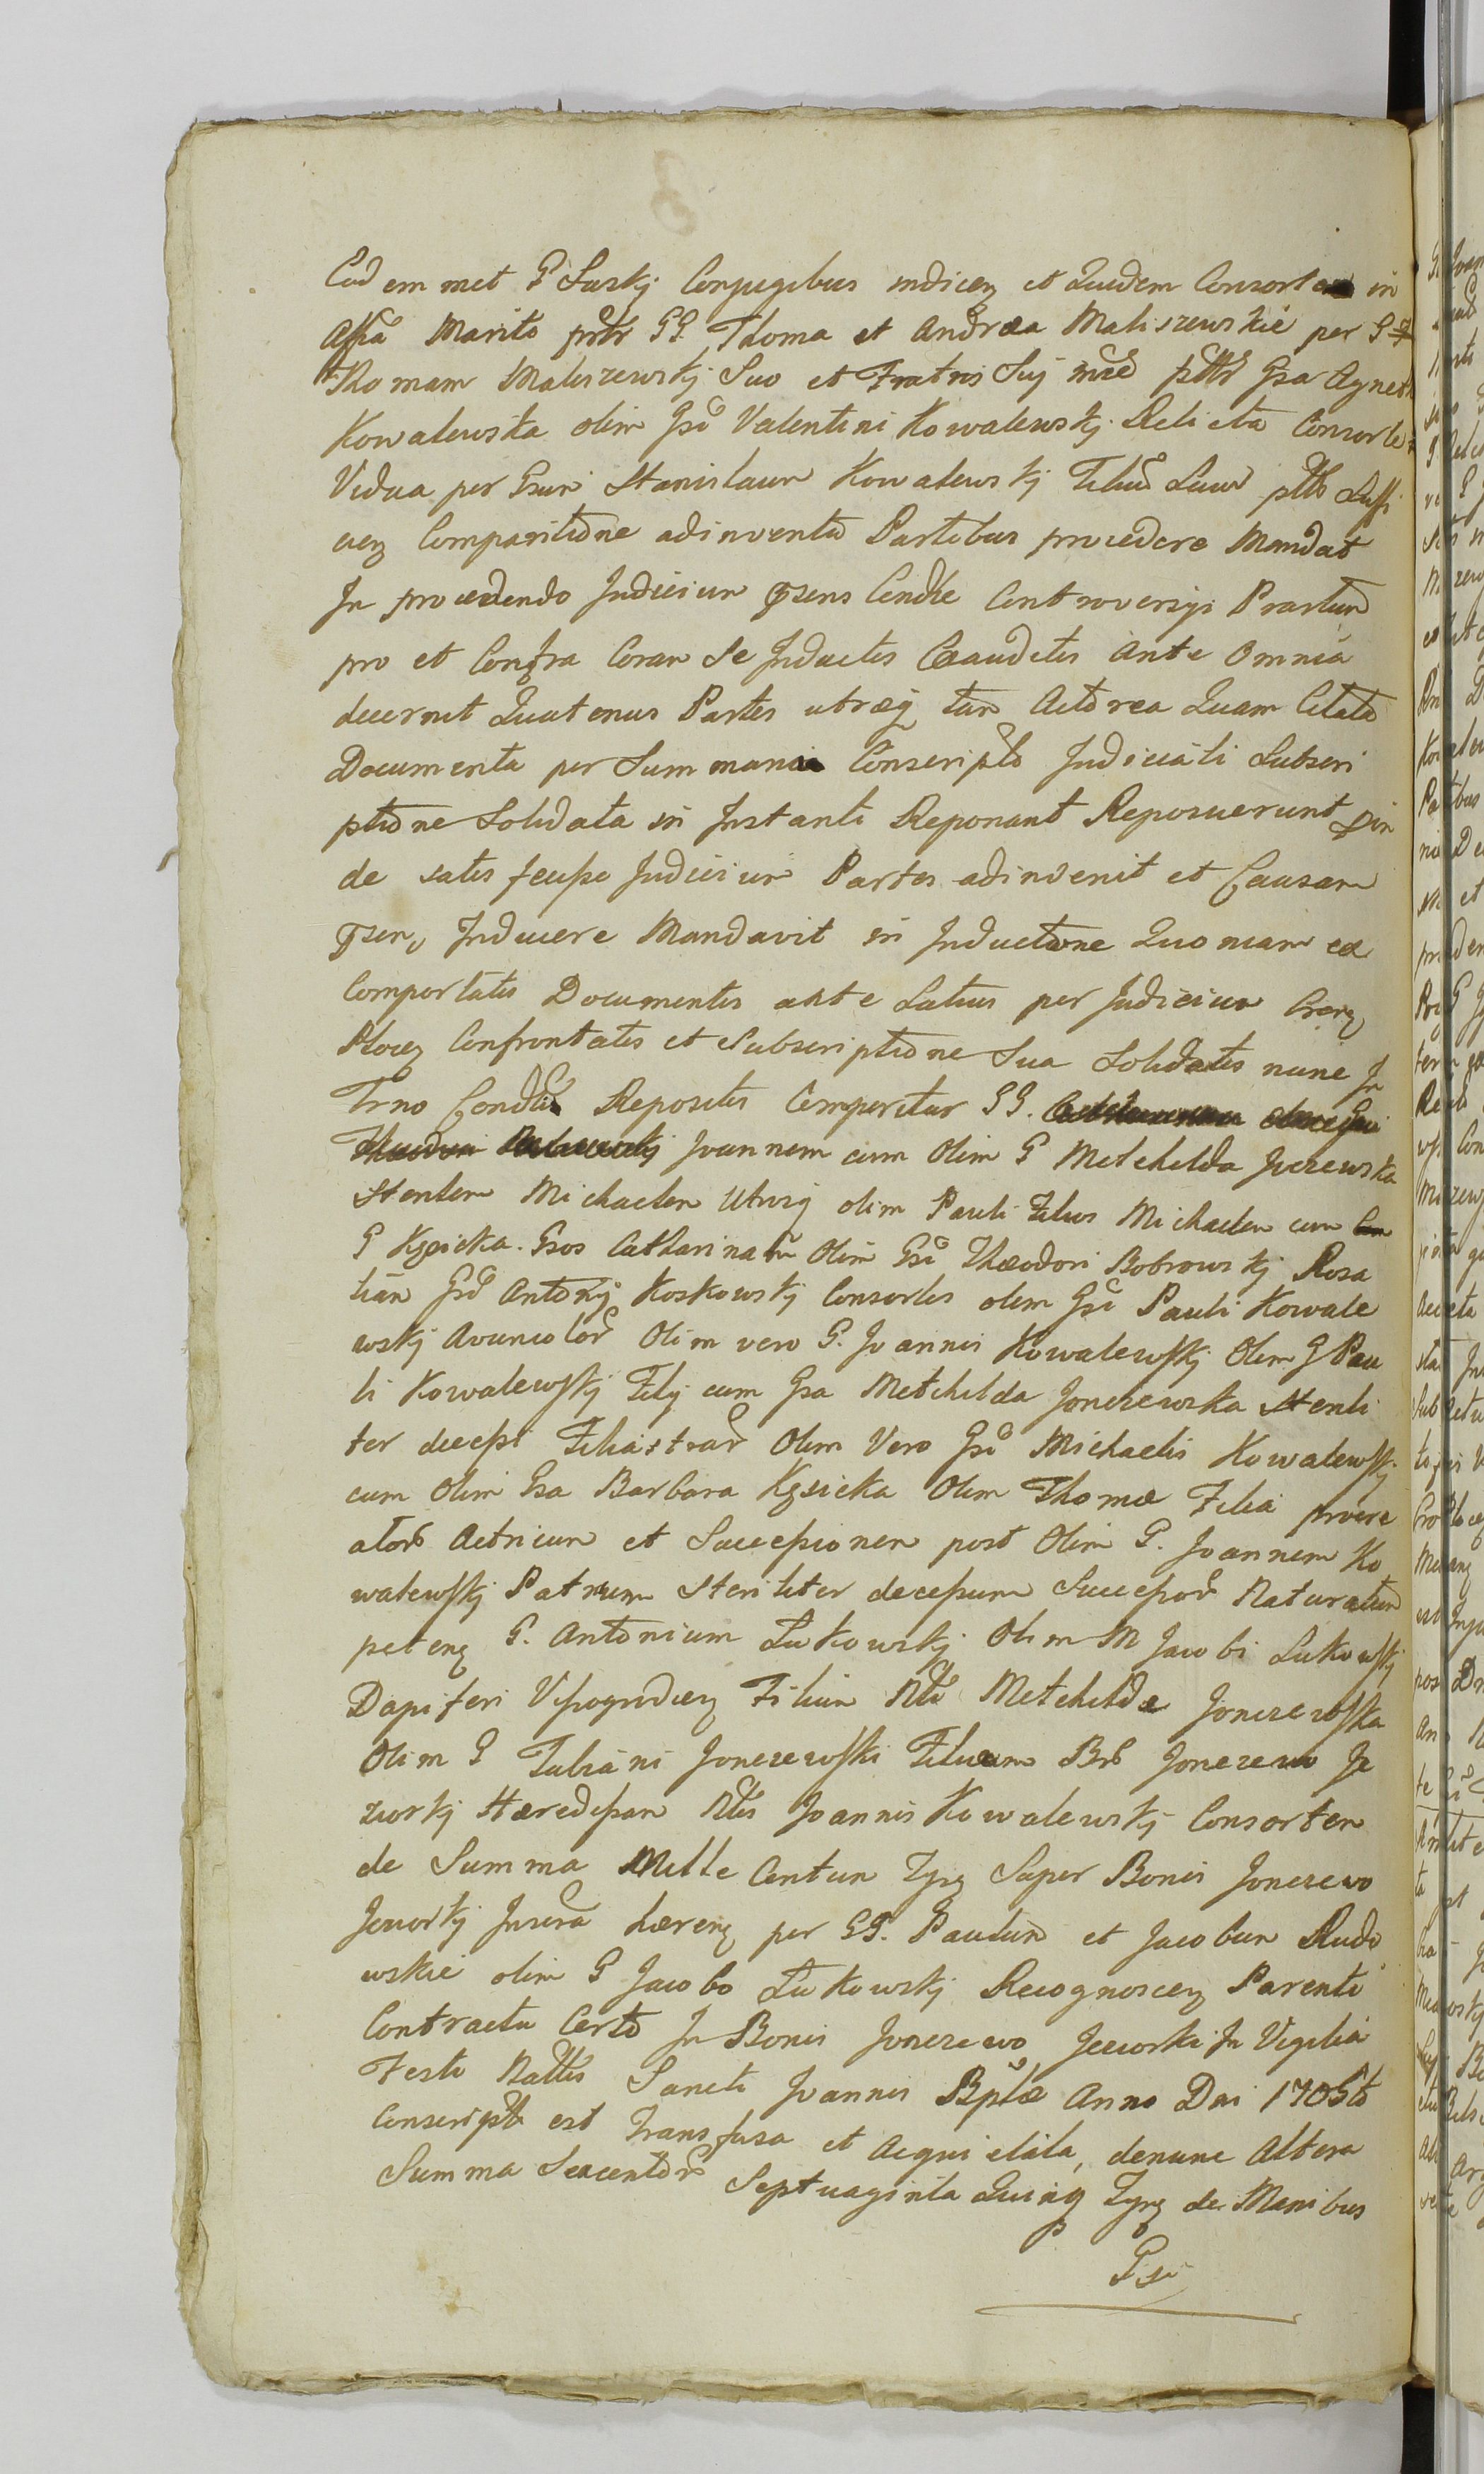 Eod em met G Suskj Conjugibus indicen et Quidem Consorte in
Assia Marito pttr GG. Thoma et Andræa Maliszewskie per G
Thomam Maliszewskj Suo et Fratris Suj noie pttr Gsa Agneth
Kowalewska olim Gsi Valentini Kowalewskj Relicta Consorte
Vidua per Gsum Stanislaum Kowalewskj Filiū Suum pttr Suffi
cien Comparitione adinventa Partibus procedere Mandat
In procedendo Judicium psens Condle Controversijs Partium
pro et Contra Coram Se Inductis Exauditis Ante Omnia
decernit Quatenus Partes utræq tam Actorea Quam Citata
Documenta per Summaria Conscripto Judiciali Subscri
ptione Solidata in Instanti Reponant Reposuerunt Pin
de satis fecisse Judicium Partes adinvenit et Causam
psen Inducere Mandavit in Inductione Quoniam ex
Comportatis Documentis ante Latius per Judicium Cren
Plocen Confrontatis et Subscriptione Sua Solidatis nunc In
Trno Condli Repositis Comperitur GG.
Joannem cum Olim G Metchilda Jnczewska
Sterilem Michaelem Utrūq olim Pauli Filios Michaelem cum
G Kęsicka. Gsos Catharinam Olim Gsi Theodori Bobrowskj Rosa
liam Gsi Antonij Koskowskj Consortes olim Gsi Pauli Kowale
wskj Avuncolor Olim vero G. Joannis Kowalewskj Olim G Pau
li Kowalewskj Filij cum Gsa Metchilda Jonczewska Sterili
ter decessi Filiastrar Olim Vero Gsi Michaelis Kowalewskj
cum Olim Gsa Barbara Kęsicka Olim Thomæ Filia procre
ator Actricum et Successionem post Olim G. Joannem Ko
walewskj Patruum Steriliter decessum Successor Naturalium
peten G. Antonium Łukowskj Olim M Jacobi Łukowskj
Dapiferi Vissogrdien Filium Nttæ Metchildæ Jonczewska
Olim G Fabiani Jonczewski Filiam Bnr Jonczewo Je
ziorkj Hæredissam Nttis Joannis Kowalewskj Consortem
de Summa Mille Centum Tyn Super Bonis Jonczewo
Jeziorkj Inscra hæren per GG. Paulum et Jacobum Rudo
wskie olim G Jacobo Łukowskj Recognoscen Parenti
Contractu Certo In Bonis Jonczewo Jeziorki In Vigilia
Festi Nattis Sancti Joannis Bptæ Anno Dni 1705to
Conscripto est Transfusa et Acquietata, denunc Altera
Summa Sexcentor Septuaginta Quinq Tyn de Manibus
Gsi